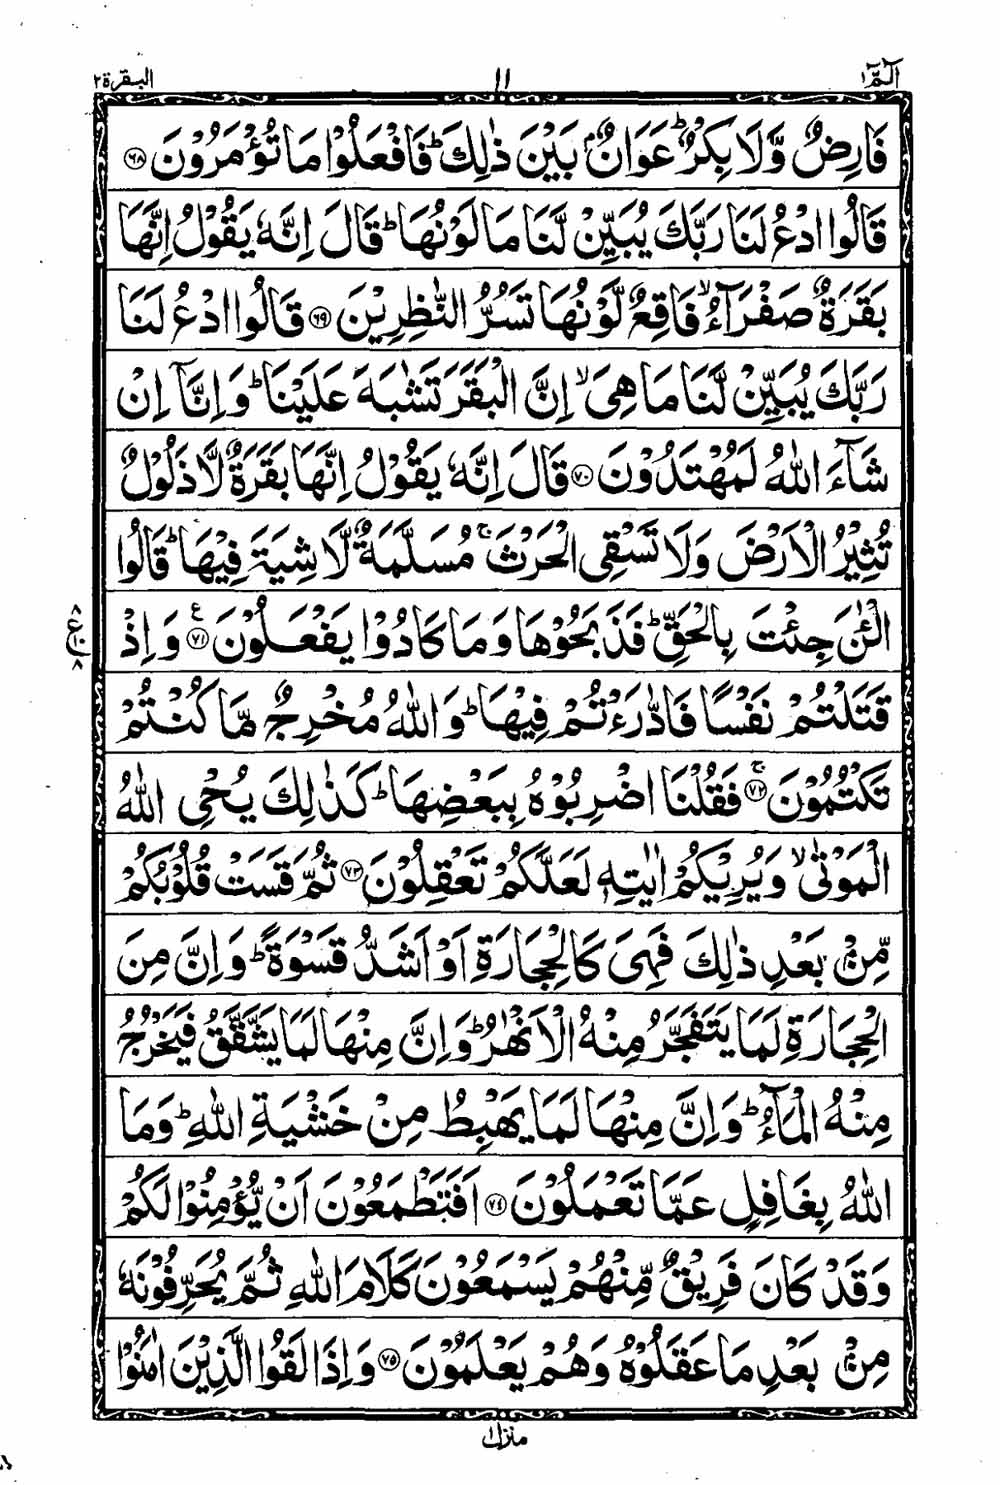 الٓمّٓ ١ ١١ البقرة ٢
فَارِضٌ وَّلَا بِكْرٌ ؕ عَوَانٌۢ بَيْنَ ذٰلِكَ ؕ فَافْعَلُوْا مَا تُؤْمَرُوْنَ ﴿۶۸﴾
قَالُوا ادْعُ لَنَا رَبَّكَ يُبَيِّنْ لَّنَا مَا لَوْنُهَا ؕ قَالَ اِنَّهٗ يَقُوْلُ اِنَّهَا
بَقَرَةٌ صَفْرَآءُ ۙ فَاقِعٌ لَّوْنُهَا تَسُرُّ النّٰظِرِيْنَ ﴿۶۹﴾ قَالُوا ادْعُ لَنَا
رَبَّكَ يُبَيِّنْ لَّنَا مَا هِيَ ۙ اِنَّ الْبَقَرَ تَشٰبَهَ عَلَيْنَا ؕ وَاِنَّآ اِنْ
شَآءَ اللّٰهُ لَمُهْتَدُوْنَ ﴿۷۰﴾ قَالَ اِنَّهٗ يَقُوْلُ اِنَّهَا بَقَرَةٌ لَّا ذَلُوْلٌ
تُثِيْرُ الْاَرْضَ وَلَا تَسْقِى الْحَرْثَ ۚ مُسَلَّمَةٌ لَّا شِيَةَ فِيْهَا ؕ قَالُوا
الْـٰٔنَ جِئْتَ بِالْحَقِّ ؕ فَذَبَحُوْهَا وَمَا كَادُوْا يَفْعَلُوْنَ ﴿۷۱﴾ ع وَاِذْ
٨ ع ١٠ ٨
قَتَلْتُمْ نَفْسًا فَادّٰرَءْتُمْ فِيْهَا ؕ وَاللّٰهُ مُخْرِجٌ مَّا كُنْتُمْ
تَكْتُمُوْنَ ﴿۷۲﴾ ۚ فَقُلْنَا اضْرِبُوْهُ بِبَعْضِهَا ؕ كَذٰلِكَ يُحْيِ اللّٰهُ
الْمَوْتٰى ۙ وَيُرِيْكُمْ اٰيٰتِهٖ لَعَلَّكُمْ تَعْقِلُوْنَ ﴿۷۳﴾ ثُمَّ قَسَتْ قُلُوْبُكُمْ
مِّنْۢ بَعْدِ ذٰلِكَ فَهِيَ كَالْحِجَارَةِ اَوْ اَشَدُّ قَسْوَةً ؕ وَاِنَّ مِنَ
الْحِجَارَةِ لَمَا يَتَفَجَّرُ مِنْهُ الْاَنْهٰرُ ؕ وَاِنَّ مِنْهَا لَمَا يَشَّقَّقُ فَيَخْرُجُ
مِنْهُ الْمَآءُ ؕ وَاِنَّ مِنْهَا لَمَا يَهْبِطُ مِنْ خَشْيَةِ اللّٰهِ ؕ وَمَا
اللّٰهُ بِغَافِلٍ عَمَّا تَعْمَلُوْنَ ﴿۷۴﴾ اَفَتَطْمَعُوْنَ اَنْ يُّؤْمِنُوْا لَكُمْ
وَقَدْ كَانَ فَرِيْقٌ مِّنْهُمْ يَسْمَعُوْنَ كَلَامَ اللّٰهِ ثُمَّ يُحَرِّفُوْنَهٗ
مِنْۢ بَعْدِ مَا عَقَلُوْهُ وَهُمْ يَعْلَمُوْنَ ﴿۷۵﴾ وَاِذَا لَقُوا الَّذِيْنَ اٰمَنُوْا
منزل ١